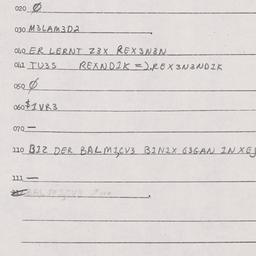 020 Ø
030 M3LAM3D2
040 ER LERNT Z3X REX3N3N
041 TU3S REXND2K =) REX3N3ND2K
050 Ø
060 $IVR3
070 —
110 B2Z DER BALM2,CV3 B2N2X G3GAN 2N
111 —